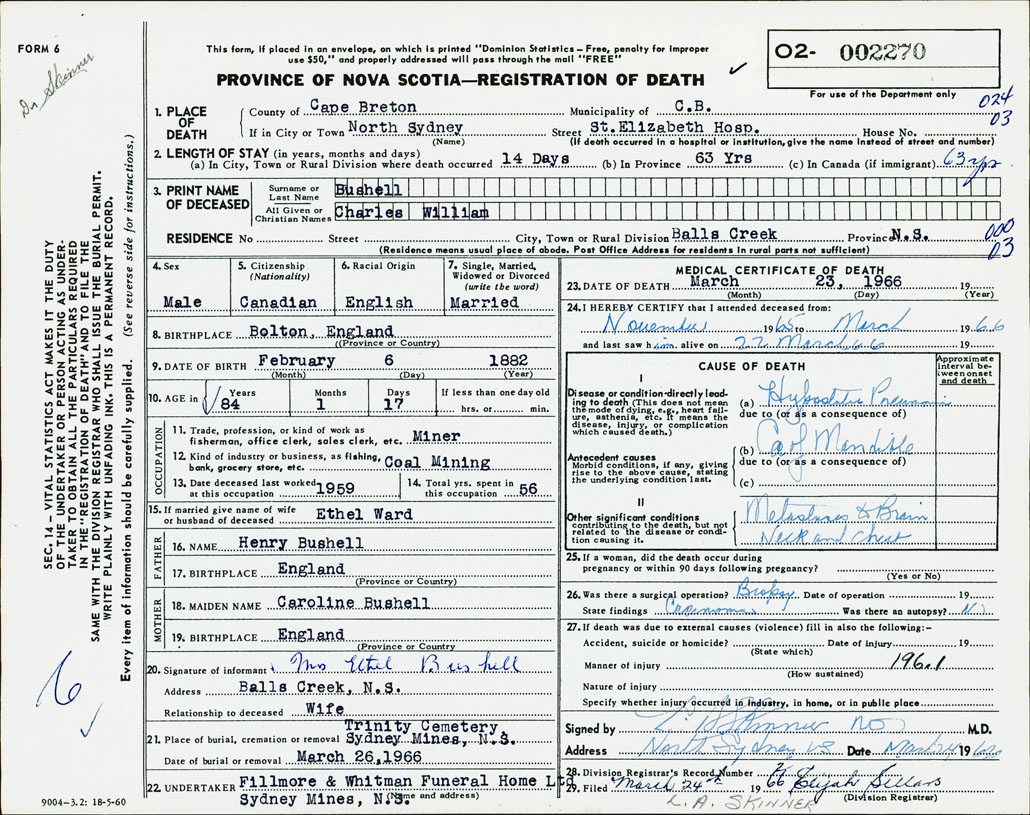 FORM 6
Dr Skinner
This form, if placed in an envelope, on which is printed "Dominion Statistics – Free, penalty for improper
use $50," and properly addressed will pass through the mail "FREE"
PROVINCE OF NOVA SCOTIA—REGISTRATION OF DEATH
O2- 002270
For use of the Department only
024
03
1. PLACE OF DEATH
County of Cape Breton Municipality of C.B.
If in City or Town North Sydney Street St.Elizabeth Hosp. House No.
(Name) (If death occurred in a hospital or institution, give the name instead of street and number)
2. LENGTH OF STAY (in years, months and days)
(a) In City, Town or Rural Division where death occurred 14 Days (b) In Province 63 Yrs (c) In Canada (if immigrant) 63 yrs
3. PRINT NAME OF DECEASED
Surname or Last Name Bushell
All Given or Christian Names Charles William
RESIDENCE No Street City, Town or Rural Division Balls Creek Province N.S.
000
03
(Residence means usual place of abode. Post Office Address for residents in rural parts not sufficient)
4. Sex Male
5. Citizenship (Nationality) Canadian
6. Racial Origin English
7. Single, Married, Widowed or Divorced (write the word) Married
8. BIRTHPLACE Bolton, England
(Province or Country)
9. DATE OF BIRTH February 6 1882
(Month) (Day) (Year)
10. AGE in Years 84 Months 1 Days 17 If less than one day old hrs. or min.
OCCUPATION
11. Trade, profession, or kind of work as
fisherman, office clerk, sales clerk, etc. Miner
12. Kind of industry or business, as fishing,
bank, grocery store, etc. Coal Mining
13. Date deceased last worked
at this occupation 1959
14. Total yrs. spent in
this occupation 56
15. If married give name of wife
or husband of deceased Ethel Ward
FATHER
16. NAME Henry Bushell
17. BIRTHPLACE England
(Province or Country)
MOTHER
18. MAIDEN NAME Caroline Bushell
19. BIRTHPLACE England
(Province or Country)
20. Signature of informant Mrs Ethel Bushell
Address Balls Creek, N.S.
Relationship to deceased Wife
Trinity Cemetery
21. Place of burial, cremation or removal Sydney Mines, N.S.
Date of burial or removal March 26,1966
22. UNDERTAKER Fillmore & Whitman Funeral Home Ltd
Sydney Mines, N.S. (Name and address)
MEDICAL CERTIFICATE OF DEATH
23. DATE OF DEATH March 23, 1966 19
(Month) (Day) (Year)
24. I HEREBY CERTIFY that I attended deceased from:
November 1965 to March 1966
and last saw him alive on 22 March 66
CAUSE OF DEATH
Approximate interval between onset and death
I
Disease or condition directly leading to death (This does not mean the mode of dying, e.g., heart failure, asthenia, etc. It means the disease, injury, or complication which caused death.)
(a) Hypostatic Pneumonia
due to (or as a consequence of)
Antecedent causes
Morbid conditions, if any, giving rise to the above cause, stating the underlying condition last.
(b) Ca of Mandible
due to (or as a consequence of)
(c)
II
Other significant conditions
contributing to the death, but not related to the disease or condition causing it.
Metastases to Brain
Neck and Chest
25. If a woman, did the death occur during
pregnancy or within 90 days following pregnancy?
(Yes or No)
26. Was there a surgical operation? Biopsy Date of operation
State findings Carcinoma Was there an autopsy? No
27. If death was due to external causes (violence) fill in also the following:–
Accident, suicide or homicide? Date of injury 19
(State which)
Manner of injury 196.1
(How sustained)
Nature of injury
Specify whether injury occurred in industry, in home, or in public place
Signed by L. A. Skinner MD M.D.
Address North Sydney NS Date 1966
28. Division Registrar's Record Number
29. Filed March 24th 1966 Elijah Sillars
L.A. SKINNER (Division Registrar)
SEC. 14 – VITAL STATISTICS ACT MAKES IT THE DUTY
OF THE UNDERTAKER OR PERSON ACTING AS UNDER-
TAKER TO OBTAIN ALL THE PARTICULARS REQUIRED
IN THE "REGISTRATION OF DEATH" AND TO FILE THE
SAME WITH THE DIVISION REGISTRAR WHO SHALL ISSUE THE BURIAL PERMIT.
WRITE PLAINLY WITH UNFADING INK. THIS IS A PERMANENT RECORD.
Every item of information should be carefully supplied. (See reverse side for instructions.)
6
9004-3.2: 18-5-60